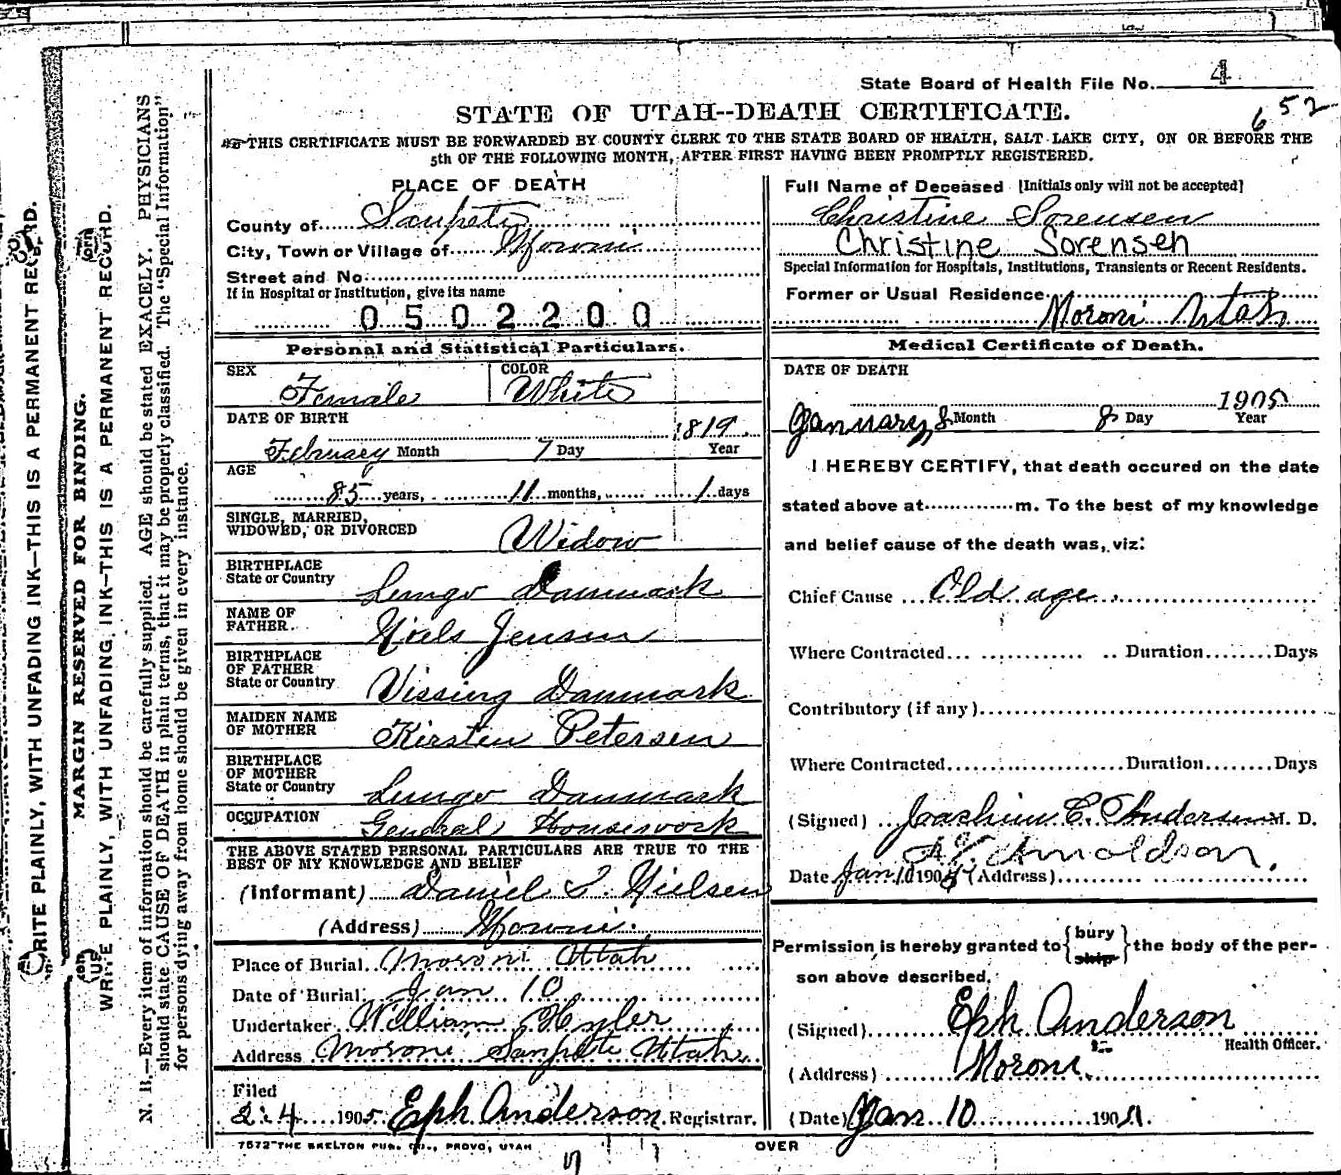 State Board of Health File No. 4
652
STATE OF UTAH--DEATH CERTIFICATE.
THIS CERTIFICATE MUST BE FORWARDED BY COUNTY CLERK TO THE STATE BOARD OF HEALTH, SALT LAKE CITY, ON OR BEFORE THE
5th OF THE FOLLOWING MONTH, AFTER FIRST HAVING BEEN PROMPTLY REGISTERED.
PLACE OF DEATH
County of Sanpete
City, Town or Village of Moroni
Street and No.
If in Hospital or Institution, give its name
0502200
Personal and Statistical Particulars.
SEX Female COLOR White
DATE OF BIRTH
February Month 7 Day 1819 Year
AGE
85 years, 11 months, 1 days
SINGLE, MARRIED,
WIDOWED, OR DIVORCED Widow
BIRTHPLACE
State or Country Danmark
NAME OF
FATHER Niels Jensen
BIRTHPLACE
OF FATHER
State or Country Vissing Danmark
MAIDEN NAME
OF MOTHER Kirsten Petersen
BIRTHPLACE
OF MOTHER
State or Country Danmark
OCCUPATION General Housework
THE ABOVE STATED PERSONAL PARTICULARS ARE TRUE TO THE
BEST OF MY KNOWLEDGE AND BELIEF
(Informant) Daniel Nielsen
(Address) Moroni.
Place of Burial Moroni Utah
Date of Burial Jan 10
Undertaker William Hyler
Address Moroni Sanpete Utah
Filed
2.4 1905 Eph Anderson Registrar.
7572 THE SKELTON PUB. CO., PROVO, UTAH
Full Name of Deceased [Initials only will not be accepted]
Christine Sorensen
Christine Sorensen
Special Information for Hospitals, Institutions, Transients or Recent Residents.
Former or Usual Residence
Moroni Utah
Medical Certificate of Death.
DATE OF DEATH
January 8 Month 8 Day 1905 Year
I HEREBY CERTIFY, that death occured on the date
stated above at m. To the best of my knowledge
and belief cause of the death was, viz:
Chief Cause Old age
Where Contracted Duration Days
Contributory (if any)
Where Contracted Duration Days
(Signed) Joachim C. Anderson M. D.
Arnoldson.
Date Jan 10 1905 (Address)
Permission is hereby granted to {bury ship} the body of the per-
son above described.
(Signed) Eph Anderson
Health Officer.
(Address) Moroni.
(Date) Jan 10 190
OVER
WRITE PLAINLY, WITH UNFADING INK—THIS IS A PERMANENT RECORD.
MARGIN RESERVED FOR BINDING.
WRITE PLAINLY, WITH UNFADING INK—THIS IS A PERMANENT RECORD.
N. B.—Every item of information should be carefully supplied. AGE should be stated EXACELY. PHYSICIANS
should state CAUSE OF DEATH in plain terms, that it may be properly classified. The "Special Information"
for persons dying away from home should be given in every instance.